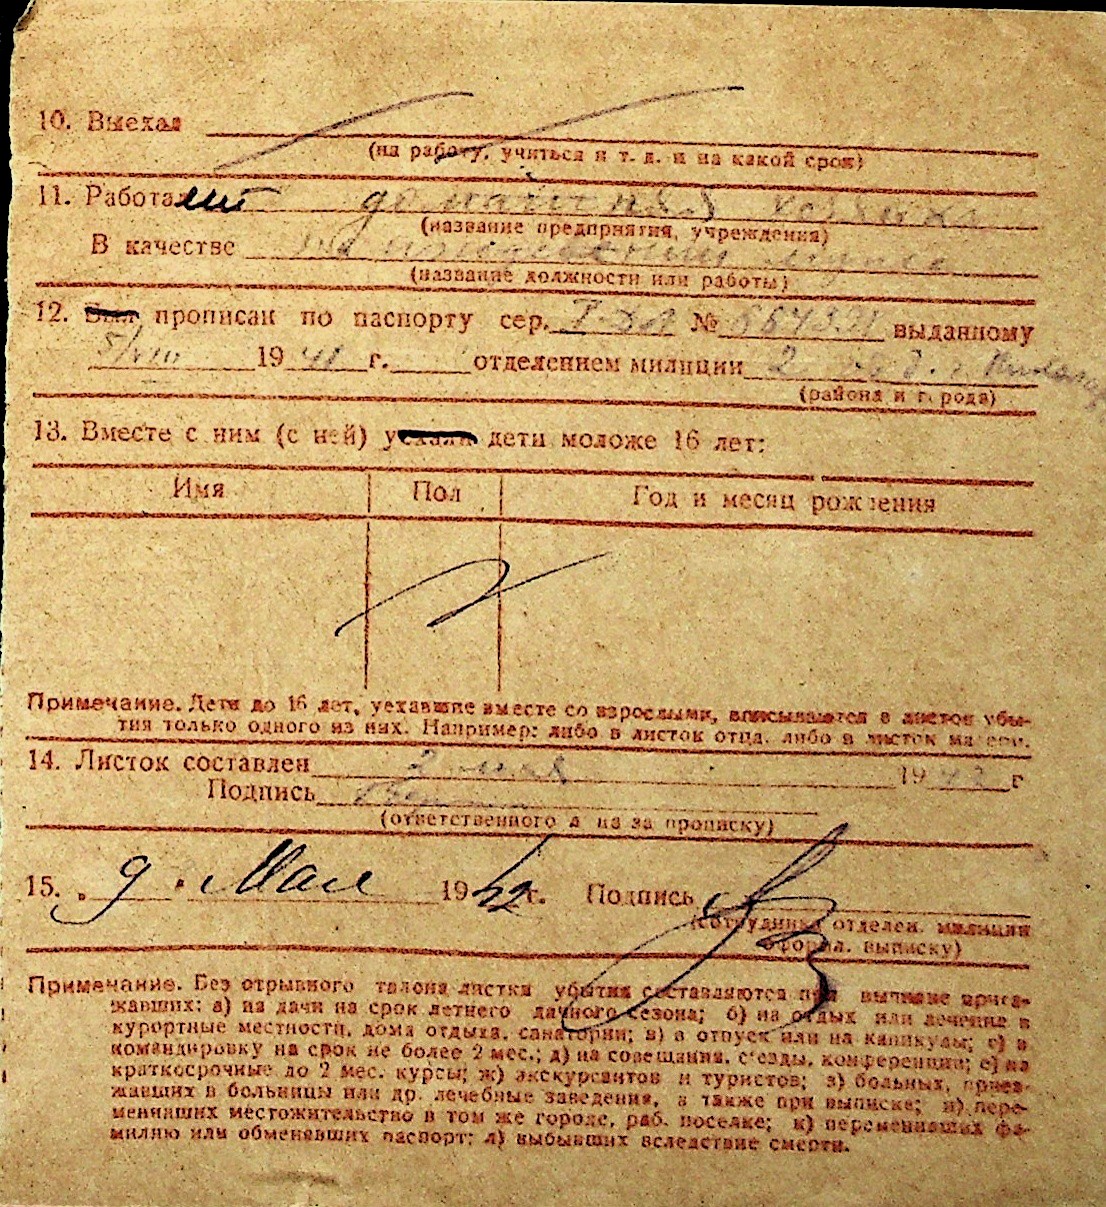 10. Выехал
(на работу, учиться и т. д. и на какой срок)
11. Работает домашняя хозяйка
(название предприятия, учреждения)
В качестве на иждивении мужа
(название должности или работы)
12. Был прописан по паспорту сер. № выданному
5/VIII 1941 г. отделением милиции 2
(района и города)
13. Вместе с ним (с ней) уехали дети моложе 16 лет:
Имя Пол Год и месяц рождения
Примечание. Дети до 16 лет, уехавшие вместе со взрослыми, вписываются в листок убы-
тия только одного из них. Например: либо в листок отца, либо в листок матери.
14. Листок составлен 2 мая 1942 г
Подпись
(ответственного л на за прописку)
15. 9 Мая 1942 г. Подпись
(сотрудника отделен. милиции
оформл. выписку)
Примечание. Без отрывного талона листка убытия составляются при выписке приез-
жавших: а) на дачи на срок летнего дачного сезона; б) на отдых или лечение в
курортные местности, дома отдыха, санатории; в) в отпуск или на каникулы; г) в
командировку на срок не более 2 мес.; д) на совещания, съезды, конференции; е) на
краткосрочные до 2 мес. курсы; ж) экскурсантов и туристов; з) больных, приез-
жавших в больницы или др. лечебные заведения, а также при выписке; и) пере-
менивших местожительство в том же городе, раб. поселке; к) переменивших фа-
милию или обменявших паспорт; л) выбывших вследствие смерти.